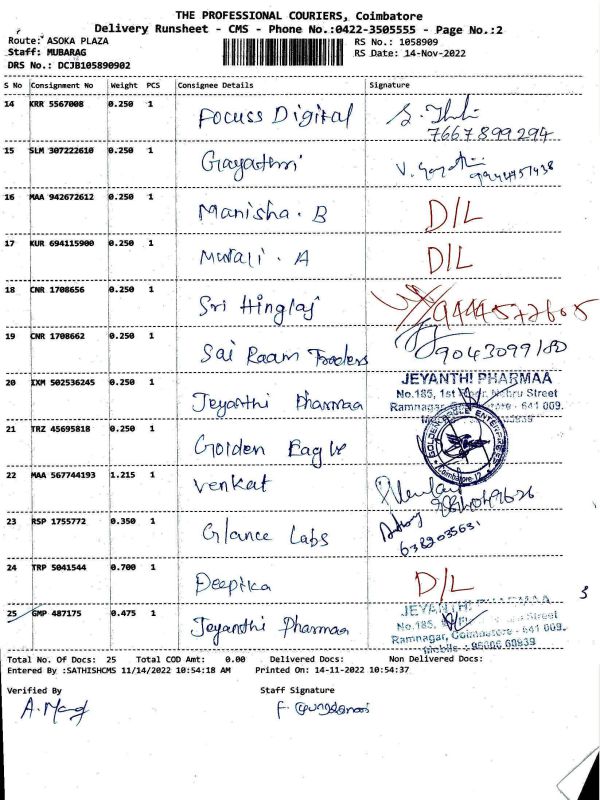 THE PROFESSIONAL COURIERS, Coimbatore
Delivery Runsheet - CMS - Phone No.:0422-3505555 - Page No.:2
Route: ASOKA PLAZA RS No.: 1058909
Staff: MUBARAG RS Date: 14-Nov-2022
DRS No.: DCJB105890902
S No Consignment No Weight PCS Consignee Details Signature
14 KRR 5567008 0.250 1 Focuss Digital
7667899294
15 SLM 307222610 0.250 1 Gayathri
16 MAA 942672612 0.250 1 Manisha. B D/L
17 KUR 694115900 0.250 1 Murali . A D/L
18 CNR 1708656 0.250 1 Sri Hinglaj 9444572605
19 CNR 1708662 0.250 1 Sai Raam Traders
20 IXM 502536245 0.250 1 Jeyanthi Pharmaa JEYANTHI PHARMAA
No.185, 1st Floor, Nehru Street
Ramnagar, Coimbatore - 641 009.
21 TRZ 45695818 0.250 1 Golden Eagle GOLDEN EAGLE ENTERPRISES
Coimbatore-12
22 MAA 567744193 1.215 1 Venkat
23 RSP 1755772 0.350 1 Glance Labs
6382035631
24 TRP 5041544 0.700 1 Deepika D/L
3
25 GMP 487175 0.475 1 Jeyanthi Pharmaa JEYANTHI PHARMAA
No.185, Street
Ramnagar, Coimbatore - 641 009.
Mobile : 96006 60939
Total No. Of Docs: 25 Total COD Amt: 0.00 Delivered Docs: Non Delivered Docs:
Entered By :SATHISHCMS 11/14/2022 10:54:18 AM Printed On: 14-11-2022 10:54:37
Verified By Staff Signature